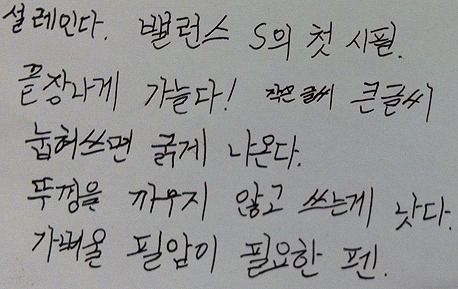 설레인다. 밸런스 S의 첫 시필.
끝장나게 가늘다! 작은 글씨 큰글씨
눕혀쓰면 굵게 나온다.
뚜껑을 끼우지 않고 쓰는게 낫다.
가벼울 필압이 필요한 펜.